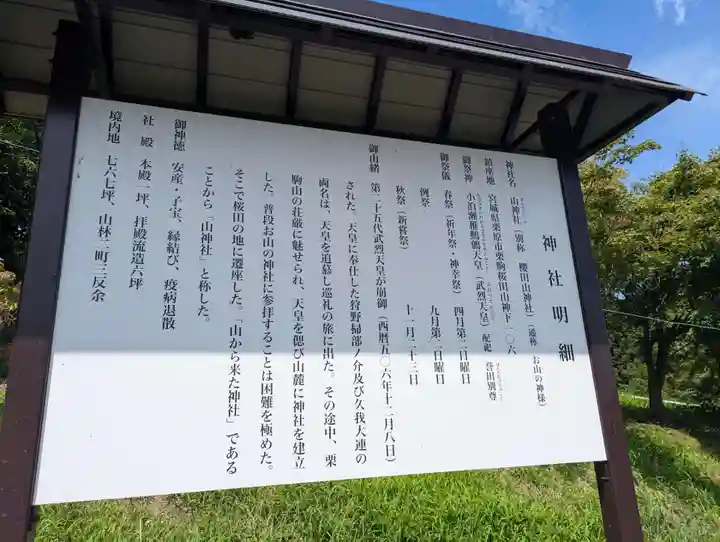 神社明細
神社名 山神社（別称 櫻田山神社）（通称 お山の神様）
鎮座地 宮城県栗原市栗駒桜田山神下一〇六
御祭神 小泊瀬稚鷦鷯天皇（武烈天皇）配祀 誉田別尊
御祭儀 春祭（祈年祭・神幸祭） 四月第二日曜日
例祭 九月第二日曜日
秋祭（新嘗祭） 十一月二十三日
御由緒 第二十五代武烈天皇が崩御（西暦五〇六年十二月八日）
された。天皇に奉仕した狩野掃部ノ介及び久我大連の
両名は、天皇を追慕し巡礼の旅に出た。その途中、栗
駒山の荘厳に魅せられ、天皇を偲び山麓に神社を建立
した。普段お山の神社に参拝することは困難を極めた。
そこで桜田の地に遷座した。「山から来た神社」である
ことから「山神社」と称した。
御神徳 安産・子宝、縁結び、疫病退散
社殿 本殿一坪、拝殿流造六坪
境内地 七六七坪、山林二町三反余